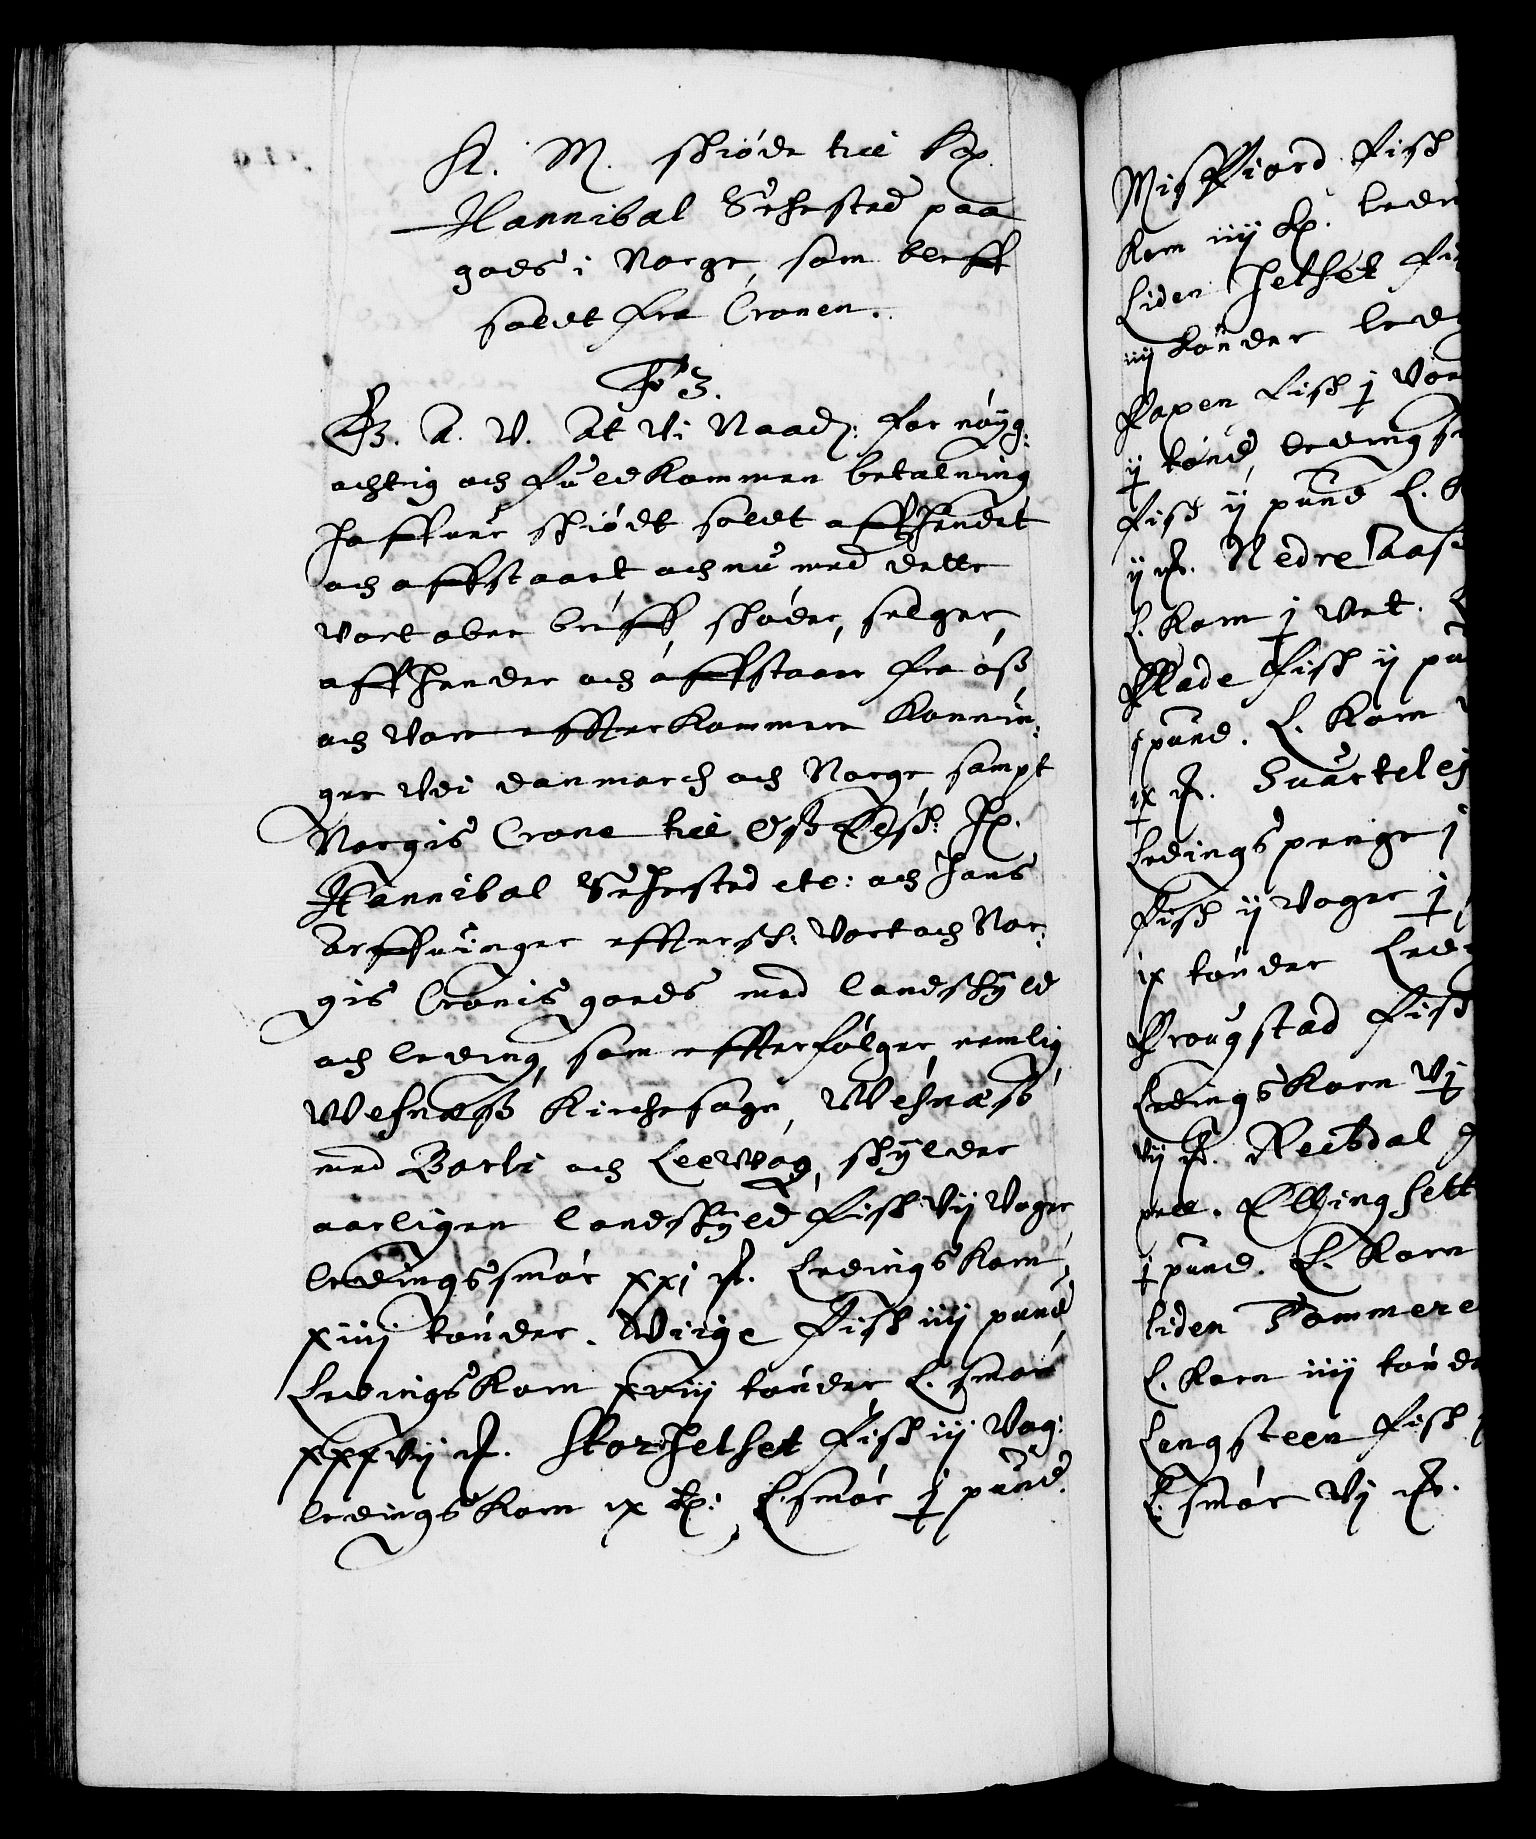 K. M. skiöde till H.
Hannibal Sehested paa
gods i Norge, som bleff
soldt fra Cronen.
F 3.
G. A. V. At Vi Naadˢ: for nöyg:
achtig och fuldkommen betalning
haffuer skiödt soldt affhendet
och affstaaet, och nu med dette
vort obne breff, sköder, selger,
affhender och affstaaer fra oß
och vore effterkommere Konnin:
ger udi danmarch och Norge, sampt
Norgis Crone till Oß Elsk: H.
Hannibal Sehested etc: och hans
Arffuinger effterskˢ: Vort och Nor:
gis Cronis goeds med landskÿld
och leding, som effterfölger, nemlig
Wesnæß Kirchesogn, Wesnæß
med Borli och Leerwog, skÿlder
aarligen landskÿld fisk vij voger
ledingssmör xxj ℔. Ledingskorn
xiiij tönder. Wiige Fisk iiij pund
Ledingskorn xviij tönder, L. smör
xxxvij ℔. StorHelset Fisk iij Vog:
ledingskorn ix tˢ: L. smör j pund.
Misfiord Fisk
Korn iiij
Liden Helset Fi
iiij tönder led
Papen Fisk j Vog
ij tönd, ledingsm
Fisk ij pund L. K
ij ℔. Nedre Aase
L. Korn j Vet.
Plade Fisk ij pu
pund. L. Korn
ix ℔. Suartelej
Ledingspenge j
Fisk ij voger j
ix tönder Led
Prougstad Fisk
Ledingskorn vj
vij ℔. Reitdal
Ellingsett
j pund. L. Korn
liden Tommere
L. Korn iiij tönde
Langsteen Fisk
L. smör vj ℔.